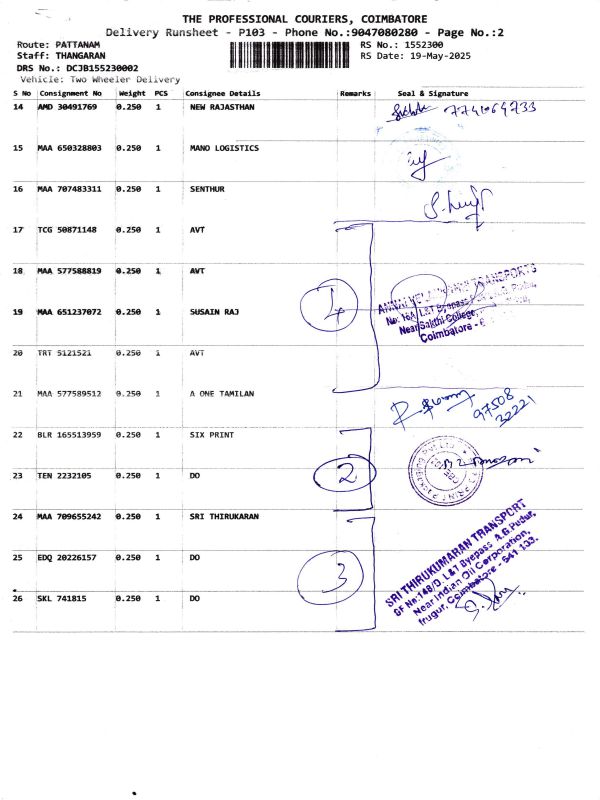 THE PROFESSIONAL COURIERS, COIMBATORE
Delivery Runsheet - P103 - Phone No.:9047080280 - Page No.:2
Route: PATTANAM
RS No.: 1552300
Staff: THANGARAN
RS Date: 19-May-2025
DRS No.: DCJB155230002
Vehicle: Two Wheeler Delivery
S No Consignment No Weight PCS Consignee Details Remarks Seal & Signature
14 AMD 30491769 0.250 1 NEW RAJASTHAN 7741064733
15 MAA 650328803 0.250 1 MANO LOGISTICS
16 MAA 707483311 0.250 1 SENTHUR
17 TCG 50871148 0.250 1 AVT
18 MAA 577588819 0.250 1 AVT
19 MAA 651237072 0.250 1 SUSAIN RAJ
4
TRANSPORTS
No: 16A, L&T Byepass
Near Sakthi College,
Coimbatore - 6
20 TRT 5121521 0.250 1 AVT
21 MAA 577589512 0.250 1 A ONE TAMILAN
97508
32221
22 BLR 165513959 0.250 1 SIX PRINT
23 TEN 2232105 0.250 1 DO
2
24 MAA 709655242 0.250 1 SRI THIRUKARAN
25 EDQ 20226157 0.250 1 DO
26 SKL 741815 0.250 1 DO
3
SRI THIRUKUMARAN TRANSPORT
GF No:148/D, L&T Byepass A.G.Pudur,
Near Indian Oil Corporation,
Irugur, Coimbatore - 641 103.